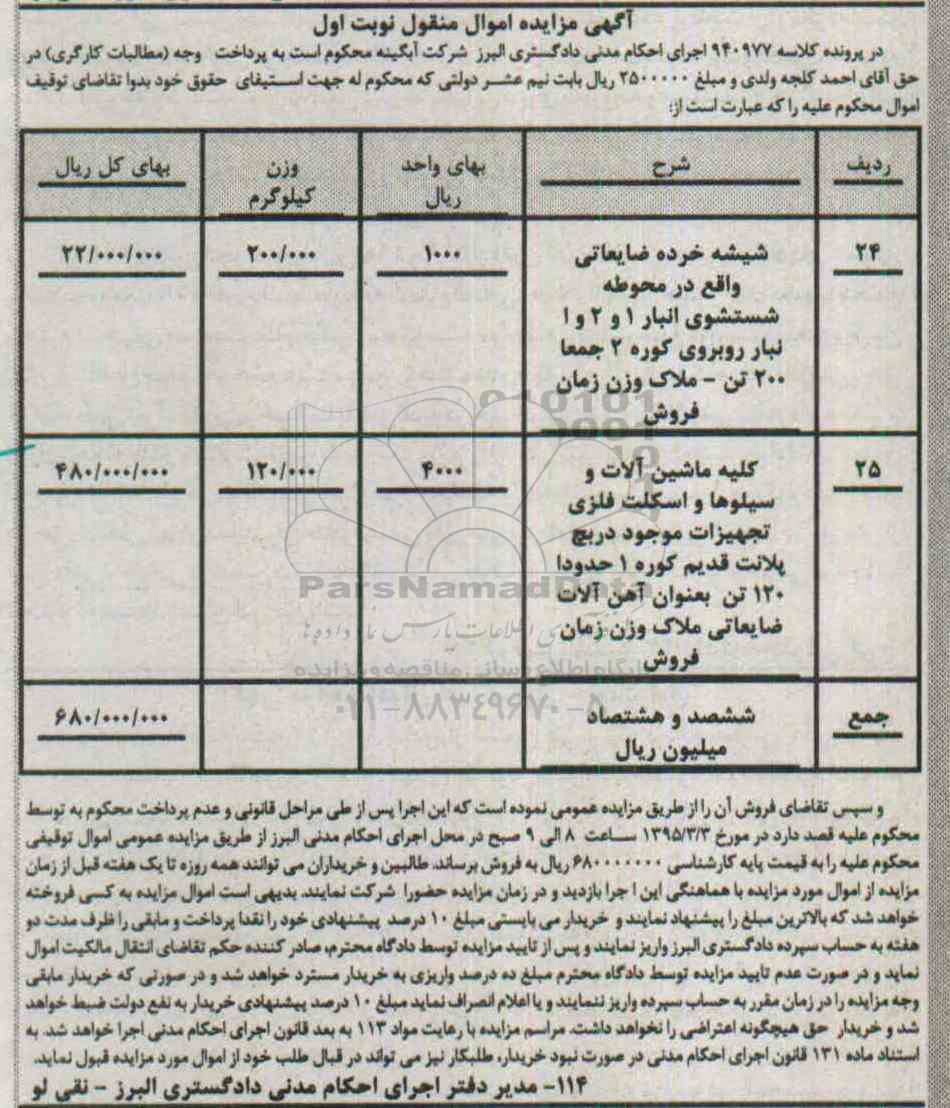 آگهی مزایده اموال منقول نوبت اول
در پرونده کلاسه ۹۴۰۹۷۷ اجرای احکام مدنی دادگستری البرز شرکت آبگینه محکوم است به پرداخت وجه (مطالبات کارگری) در
حق آقای احمد کلجه ولدی و مبلغ ۲۵۰۰۰۰۰ ریال بابت نیم عشر دولتی که محکوم له جهت استیفای حقوق خود بدوا تقاضای توقیف
اموال محکوم علیه را که عبارت است از:
ردیف شرح بهای واحد وزن بهای کل ریال
ریال کیلوگرم
۲۴ شیشه خرده ضایعاتی ۱۰۰۰ ۲۰۰/۰۰۰ ۲۲/۰۰۰/۰۰۰
واقع در محوطه
شستشوی انبار ۱ و ۲ و ا
نبار روبروی کوره ۲ جمعا
۲۰۰ تن - ملاک وزن زمان
فروش
۲۵ کلیه ماشین آلات و ۴۰۰۰ ۱۲۰/۰۰۰ ۴۸۰/۰۰۰/۰۰۰
سیلوها و اسکلت فلزی
تجهیزات موجود دربچ
پلانت قدیم کوره ۱ حدودا
۱۲۰ تن بعنوان آهن آلات
ضایعاتی ملاک وزن زمان
فروش
جمع ششصد و هشتصاد ۶۸۰/۰۰۰/۰۰۰
میلیون ریال
ParsNamadData
پایگاه اطلاع رسانی مناقصه و مزایده
۰۲۱-۸۸۳۴۹۶۷۰-۵
و سپس تقاضای فروش آن را از طریق مزایده عمومی نموده است که این اجرا پس از طی مراحل قانونی و عدم پرداخت محکوم به توسط
محکوم علیه قصد دارد در مورخ ۱۳۹۵/۳/۳ ساعت ۸ الی ۹ صبح در محل اجرای احکام مدنی البرز از طریق مزایده عمومی اموال توقیفی
محکوم علیه را به قیمت پایه کارشناسی ۶۸۰۰۰۰۰۰۰ ریال به فروش برساند. طالبین و خریداران می توانند همه روزه تا یک هفته قبل از زمان
مزایده از اموال مورد مزایده با هماهنگی این ا جرا بازدید و در زمان مزایده حضورا شرکت نمایند. بدیهی است اموال مزایده به کسی فروخته
خواهد شد که بالاترین مبلغ را پیشنهاد نمایند و خریدار می بایستی مبلغ ۱۰ درصد پیشنهادی خود را نقدا پرداخت و مابقی را ظرف مدت دو
هفته به حساب سپرده دادگستری البرز واریز نمایند و پس از تایید مزایده توسط دادگاه محترم، صادر کننده حکم تقاضای انتقال مالکیت اموال
نماید و در صورت عدم تایید مزایده توسط دادگاه محترم مبلغ ده درصد واریزی به خریدار مسترد خواهد شد و در صورتی که خریدار مابقی
وجه مزایده را در زمان مقرر به حساب سپرده واریز ننمایند و یا اعلام انصراف نماید مبلغ ۱۰ درصد پیشنهادی خریدار به نفع دولت ضبط خواهد
شد و خریدار حق هیچگونه اعتراضی را نخواهد داشت. مراسم مزایده با رعایت مواد ۱۱۳ به بعد قانون اجرای احکام مدنی اجرا خواهد شد. به
استناد ماده ۱۳۱ قانون اجرای احکام مدنی در صورت نبود خریدار، طلبکار نیز می تواند در قبال طلب خود از اموال مورد مزایده قبول نماید.
۱۱۴- مدیر دفتر اجرای احکام مدنی دادگستری البرز - نقی لو